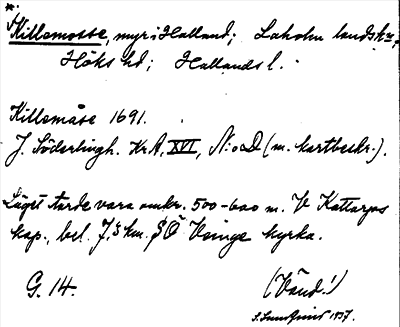 *.
Killemosse, myr i Halland; Laholm landskm,
Höks hd; Hallands l.
Killemåse 1691.
J. Söderlingh. Kr.A, XVI, N:o D (m. kartbeskr.).
Läget torde vara omkr. 500-600 m. V Kattarps
kap., bel. 7,5 km. SÖ Veinge kyrka.
G. 14.
(Vänd!)
1937.